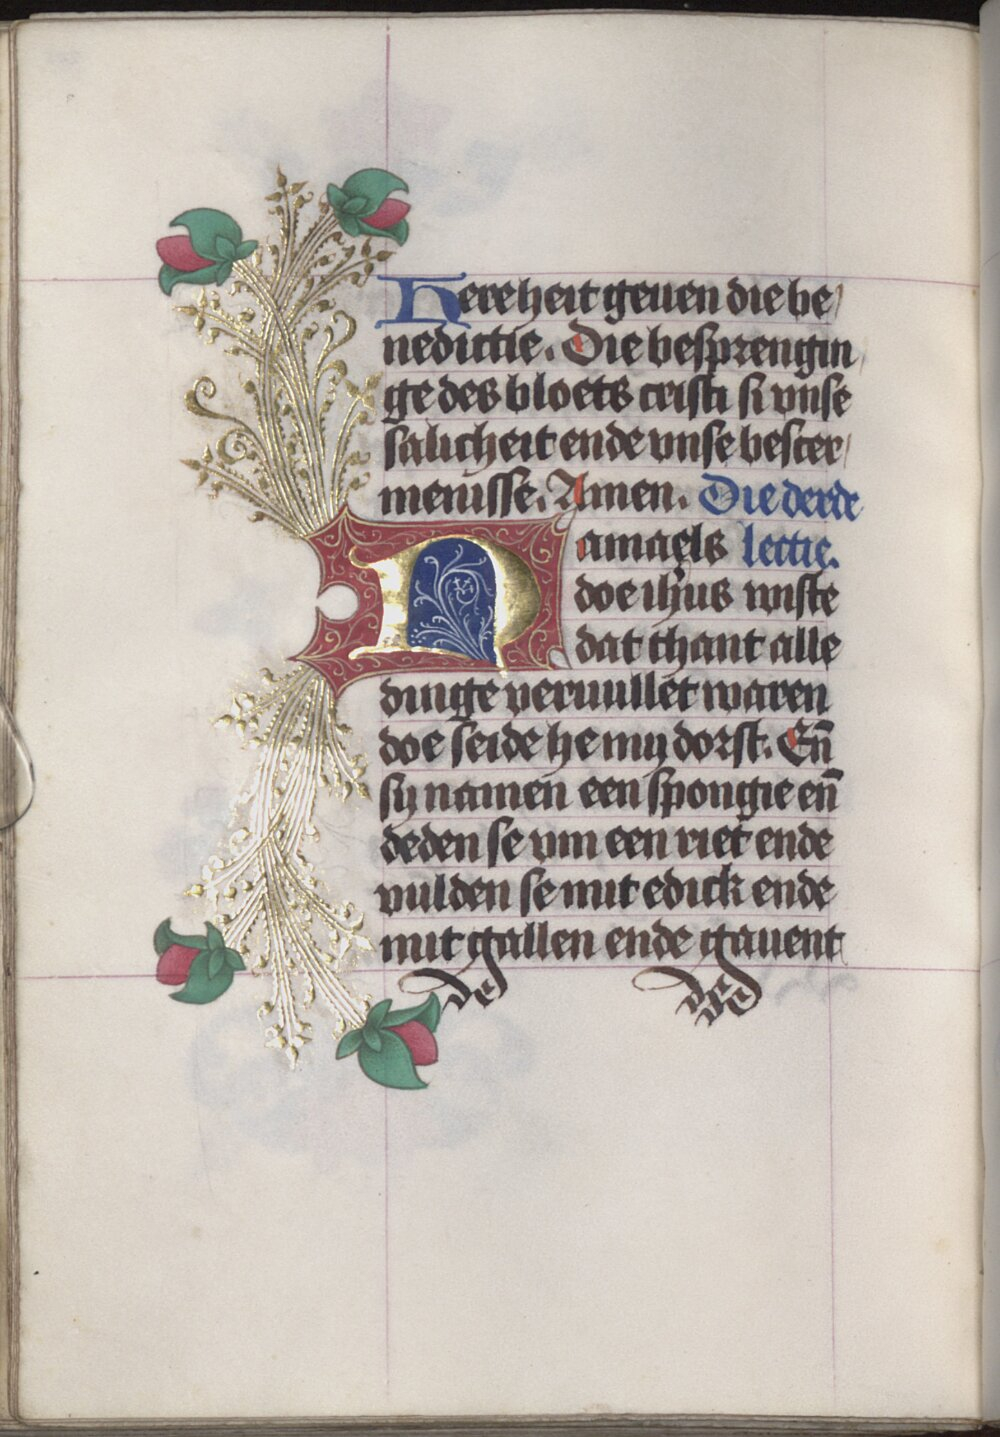 Here heit geuen die be/
nedictie. Die besprengin
ge des bloets cristi si vnse
salicheit ende vnse bescer/
menisse. Amen. Die derde
Namaels lectie.
doe ihūs wiste
dat thant alle
dinge veruullet waren
doe seide he my dorst. Eñ
sy namen een spongie eñ
deden se vm een riet ende
vulden se mit edick ende
mit gallen ende gauent